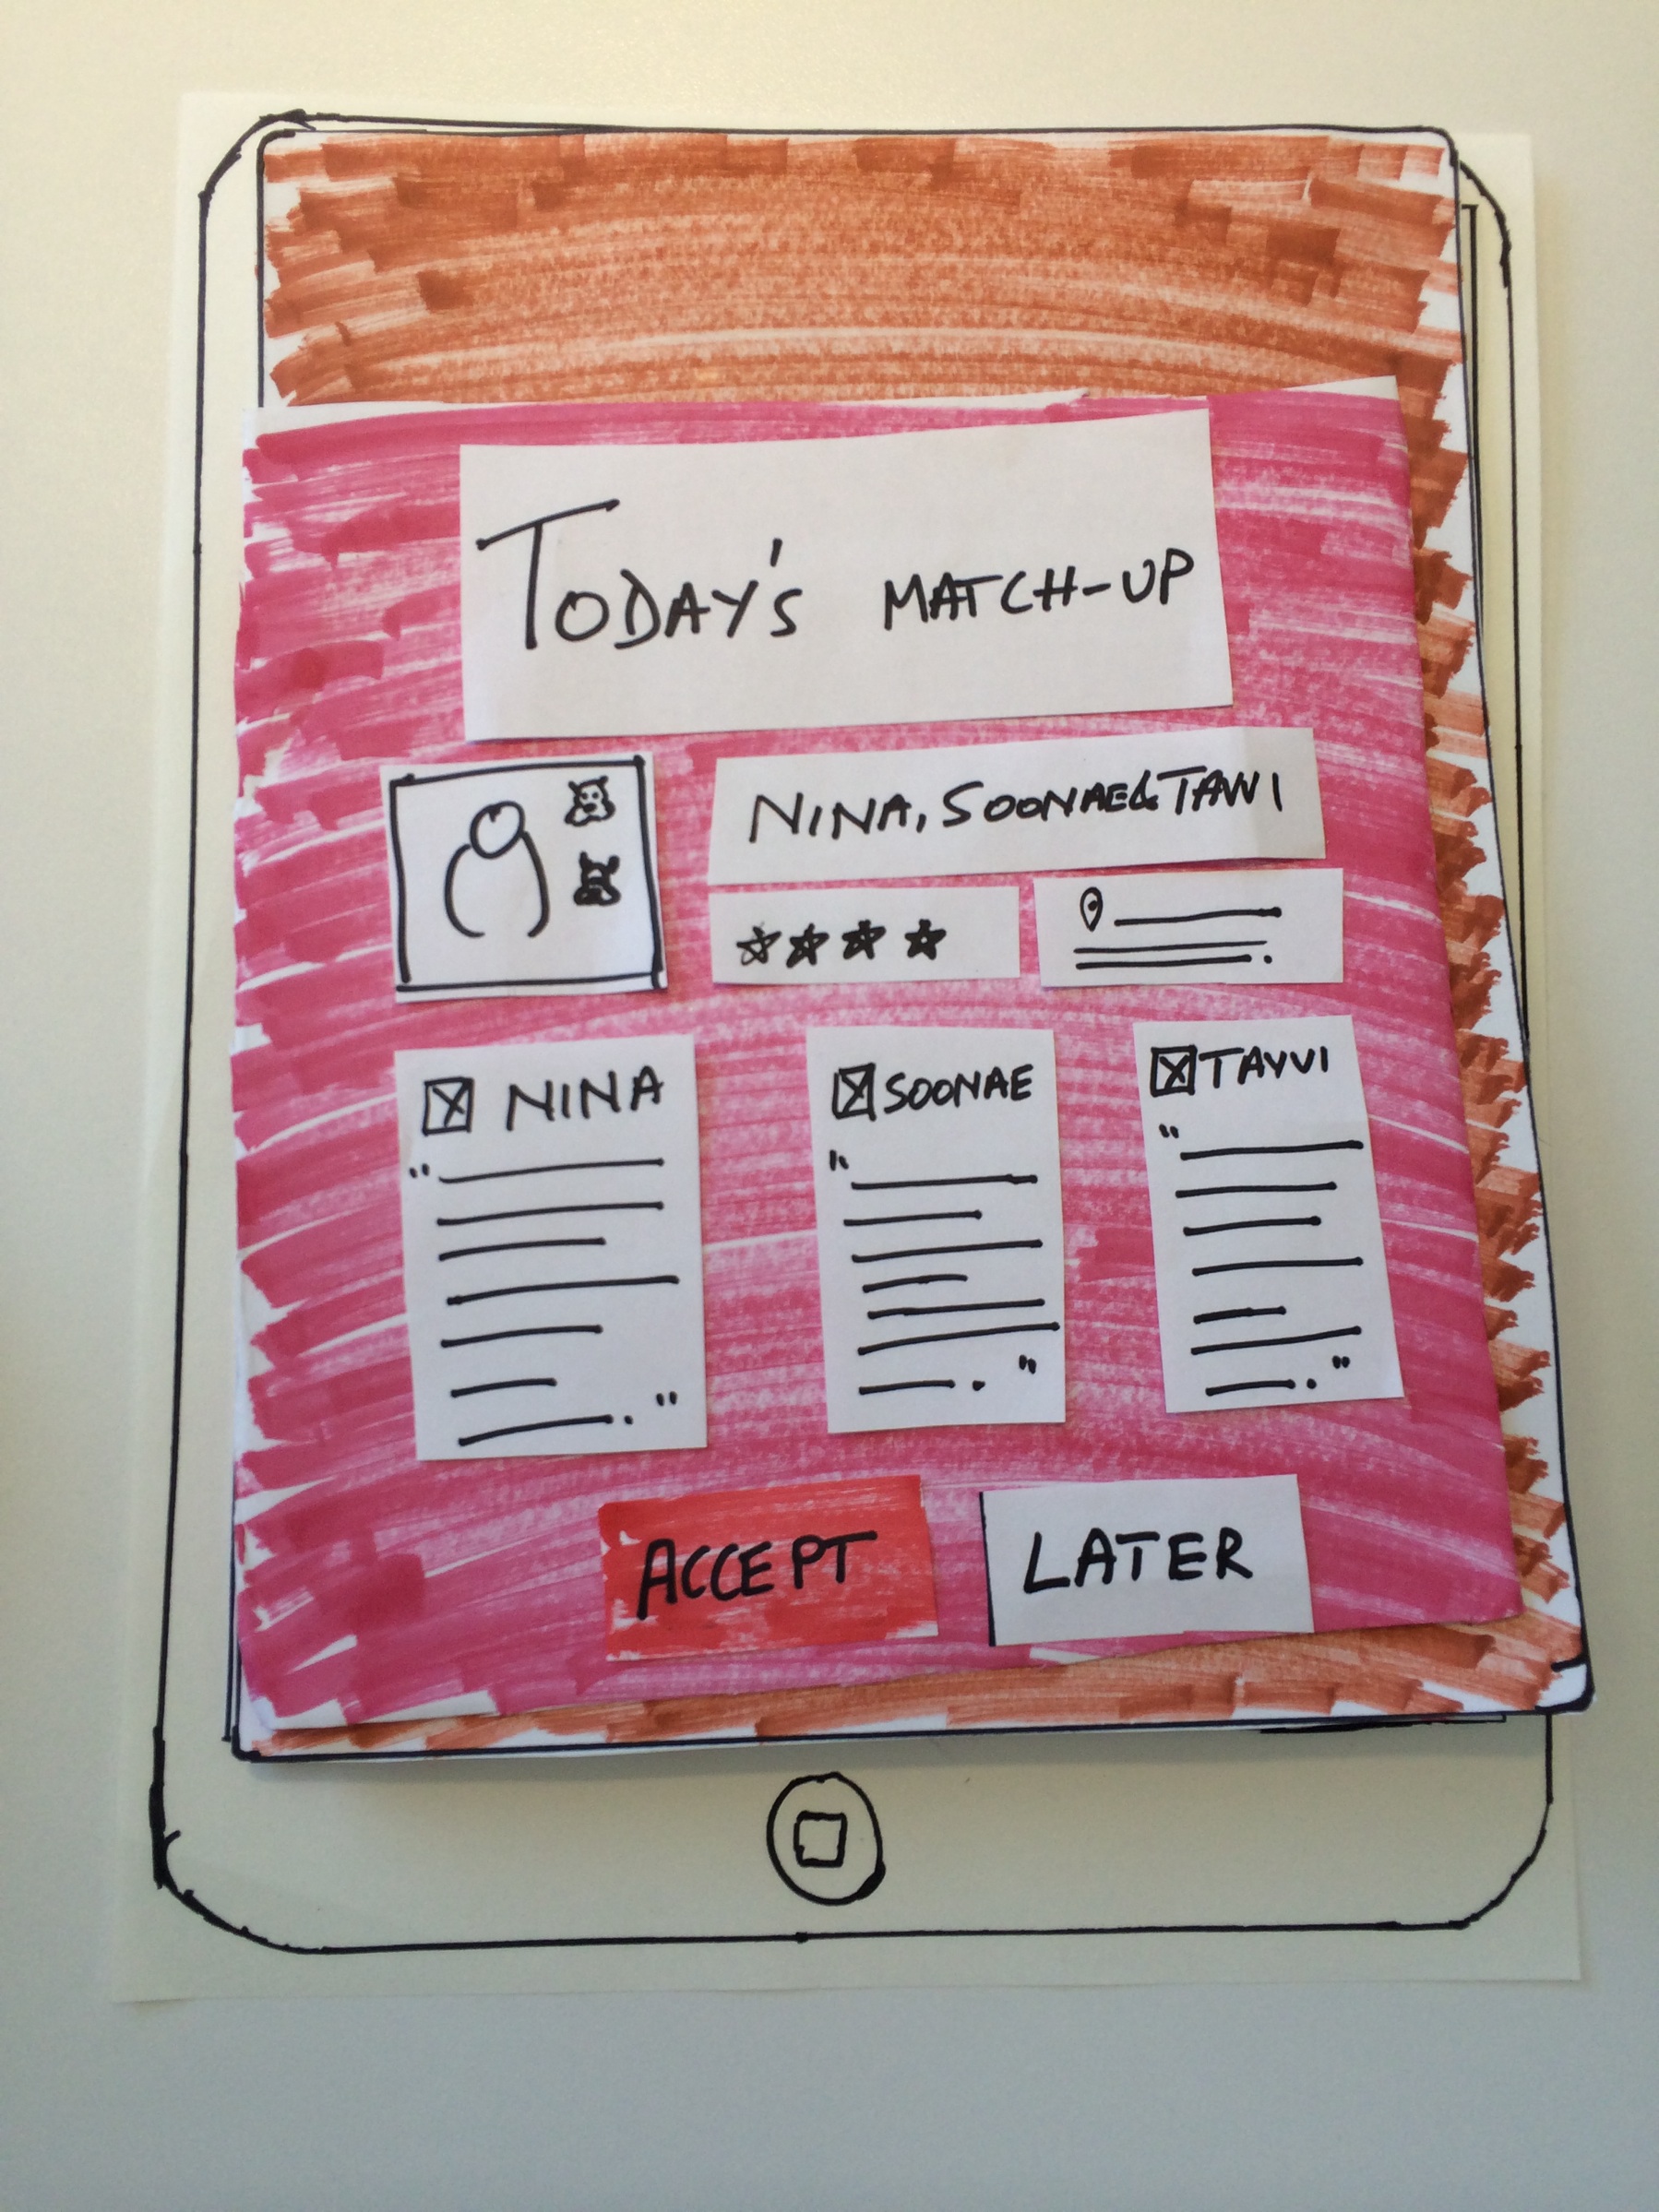 TODAY'S MATCH-UP
NINA, SOONAE & TAVVI
NINA
SOONAE
TAVVI
ACCEPT
LATER